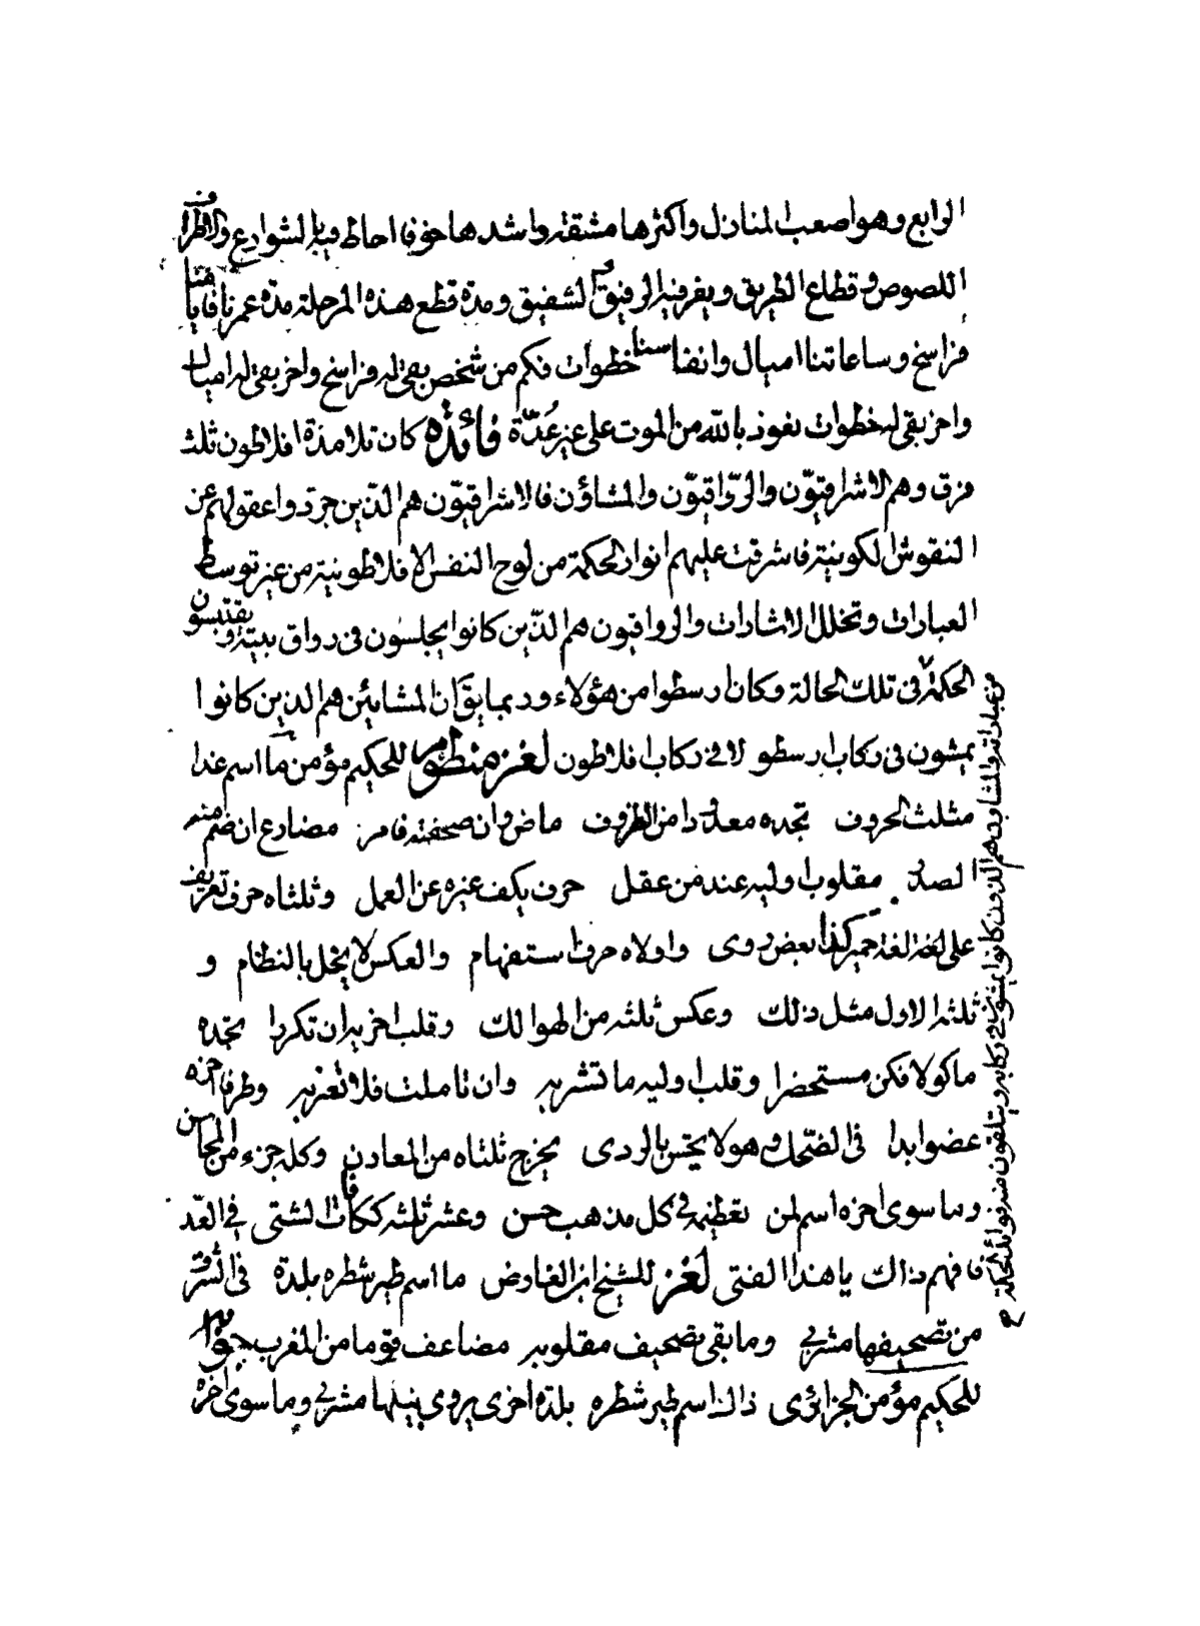 الرابع وهو اصعب المنازل واكثرها مشقة واشدها خوفا احاط فيه الشوارع والاطراف
اللصوص وقطاع الطريق ويفر فيه الرفيق الشفيق ومدة قطع هذه المرحلة مدة عمرنا فايامنا
فراسخ وساعاتنا اميال وانفاسنا خطوات فكم من شخص بقى له فراسخ واخر بقى له اميال
واخر بقى له خطوات نعوذ بالله من الموت على غير عُدّة فائدة كان تلامذة افلاطون ثلث
فرق وهم الاشراقيّون والرّواقيّون والمشاؤن فالاشراقيّون هم الذّين جرّدوا عقولهم عن
النقوش الكونية فاشرقت عليهم انوار الحكمة من لوح النفس الافلاطونية من غير توسط
العبارات وتخلل الاشارات والرواقيون هم الذّين كانوا يجلسون فى رواق بيته ويقتبسون
الحكمة فى تلك الحالة وكان ارسطو من هؤلاء وربما يق ان المشايئن هم الذين كانوا
يمشون فى ركاب ارسطو لا فى ركاب افلاطون لغز منظوم للحكيم مؤمن ما اسم غدا
مثلث الحروف تجده معدودا من الظروف ماض وان صحفته فامر مضارع ان ضم منه
الصدر مقلوب اوليه عند من عقل حرف يكف غيره عن العمل وثلثاه حرف تعريف
على لغة حمير كذا بعض روى واولاه حرف استفهام والعكس لا يخل بالنظام و
ثلثه الاول مثل ذلك وعكس ثلثه من الهوالك وقلب اخريه ان تكررا تجده
ماكولا فكن مستحضرا وقلب اوليه ما تشربه وان تاملت فلا تغربه وطرفا اخره
عضو ابدا فى الضحك وهو لا يخس بالردى يخرج ثلثاه من المعادن وكله جزء من المحاسن
وما سوى اخره اسم لمن تعظيمه فى كل مذهب حسن وعشر ثلثه ككافات الشتى فى العّد
فافهم ذاك يا هذا الفتى لغز للشيخ ابن الفارض ما اسم طير شطره بلدة فى الشرق
من تصحيفها مشربى وما بقى تصحيف مقلوبه مضاعف قوما من المغرب جوابه
للحكيم مؤمن الجزائرى ذاك اسم طير شطره بلدة اخرى يروى نيلها مشربى وما سوى اخره
من عباراته والمشاؤن هم الذين كانوا يمشون فى ركابه ويتلقون منه فوائد الحكمة